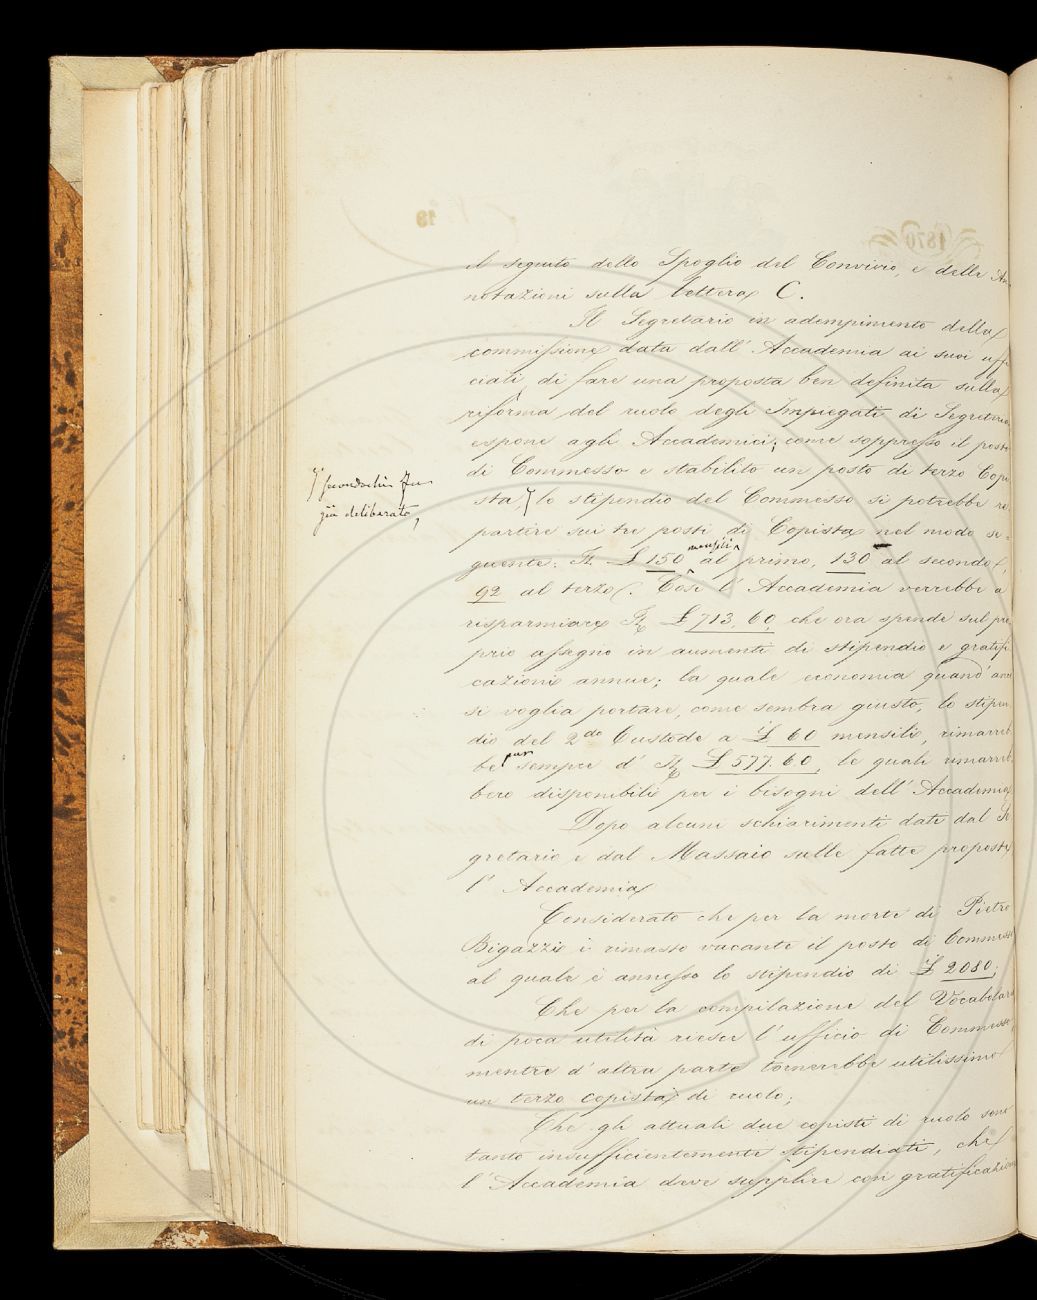 il seguito dello Spoglio del Convivio, e delle An
notazioni sulla lettera C.
Il Segretario in adempimento della
commissione data dall' Accademia ai suoi uffi
ciali, di fare una proposta ben definita sulla
riforma del ruolo degli Impiegati di Segreteria
espone agli Accademici; come soppresso il posto
di Commesso e stabilito un posto di terzo Copi
sta, lo stipendio del Commesso si potrebbe re
secondochè fu
già deliberato,
partire sui tre posti di Copista nel modo se=
guente: £ 150 mensili al primo, 130 al secondo,
92 al terzo. Così l' Accademia verrebbe a
risparmiare £ 713. 60, che ora spende sul pro
prio assegno in aumenti di stipendio e gratifi
cazioni annue; la quale economia quand' anco
si voglia portare, come sembra giusto, lo stipen
dio del 2do Custode a £ 60 mensili, rimarreb
be pur sempre d' £ 577. 60, le quali rimarreb
bero disponibili per i bisogni dell' Accademia
Dopo alcuni schiarimenti dati dal Se
gretario e dal Massaio sulle fatte proposte
l' Accademia
Considerato che per la morte di Pietro
Bigazzi è rimasto vacante il posto di Commesso
al quale è annesso lo stipendio di £ 2080;
Che per la compilazione del Vocabolario
di poca utilità riesce l' ufficio di Commesso,
mentre d' altra parte tornerebbe utilissimo
un terzo copista di ruolo;
Che gli attuali due copisti di ruolo sono
tanto insufficientemente stipendiati, che
l' Accademia deve supplire con gratificazioni